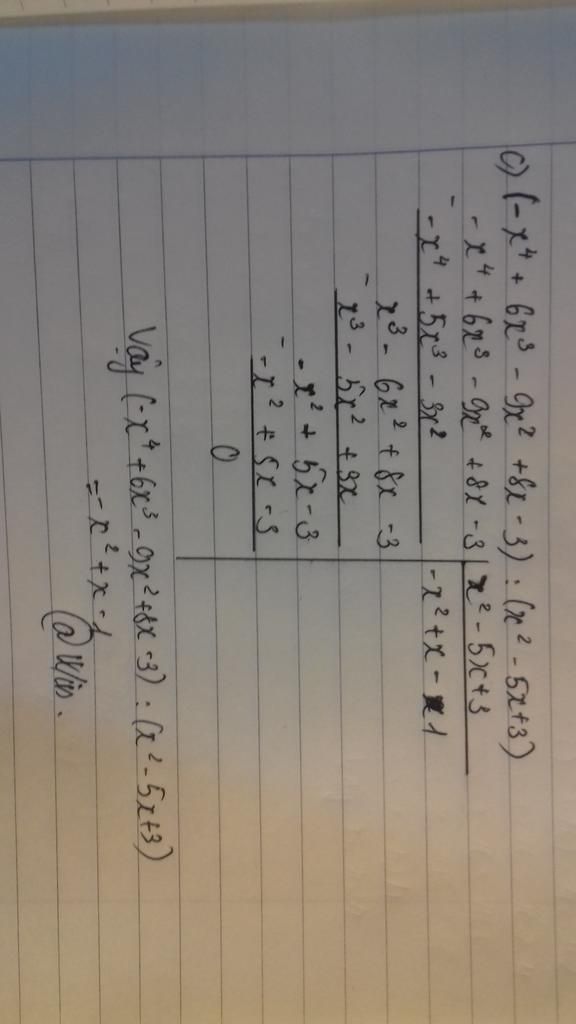 c) (-x⁴ + 6x³ - 9x² + 8x - 3) : (x² - 5x + 3)
- x⁴ + 6x³ - 9x² + 8x - 3 | x² - 5x + 3
- -x⁴ + 5x³ - 3x² | -x² + x - 1
x³ - 6x² + 8x - 3
- x³ - 5x² + 3x
- x² + 5x - 3
- -x² + 5x - 3
0
Vậy (-x⁴ + 6x³ - 9x² + 8x - 3) : (x² - 5x + 3)
= -x² + x - 1